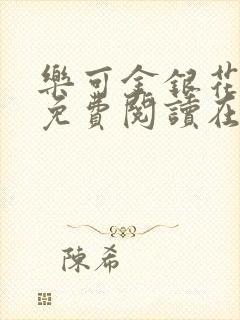 樂可金銀花
免費閱讀在
陳希